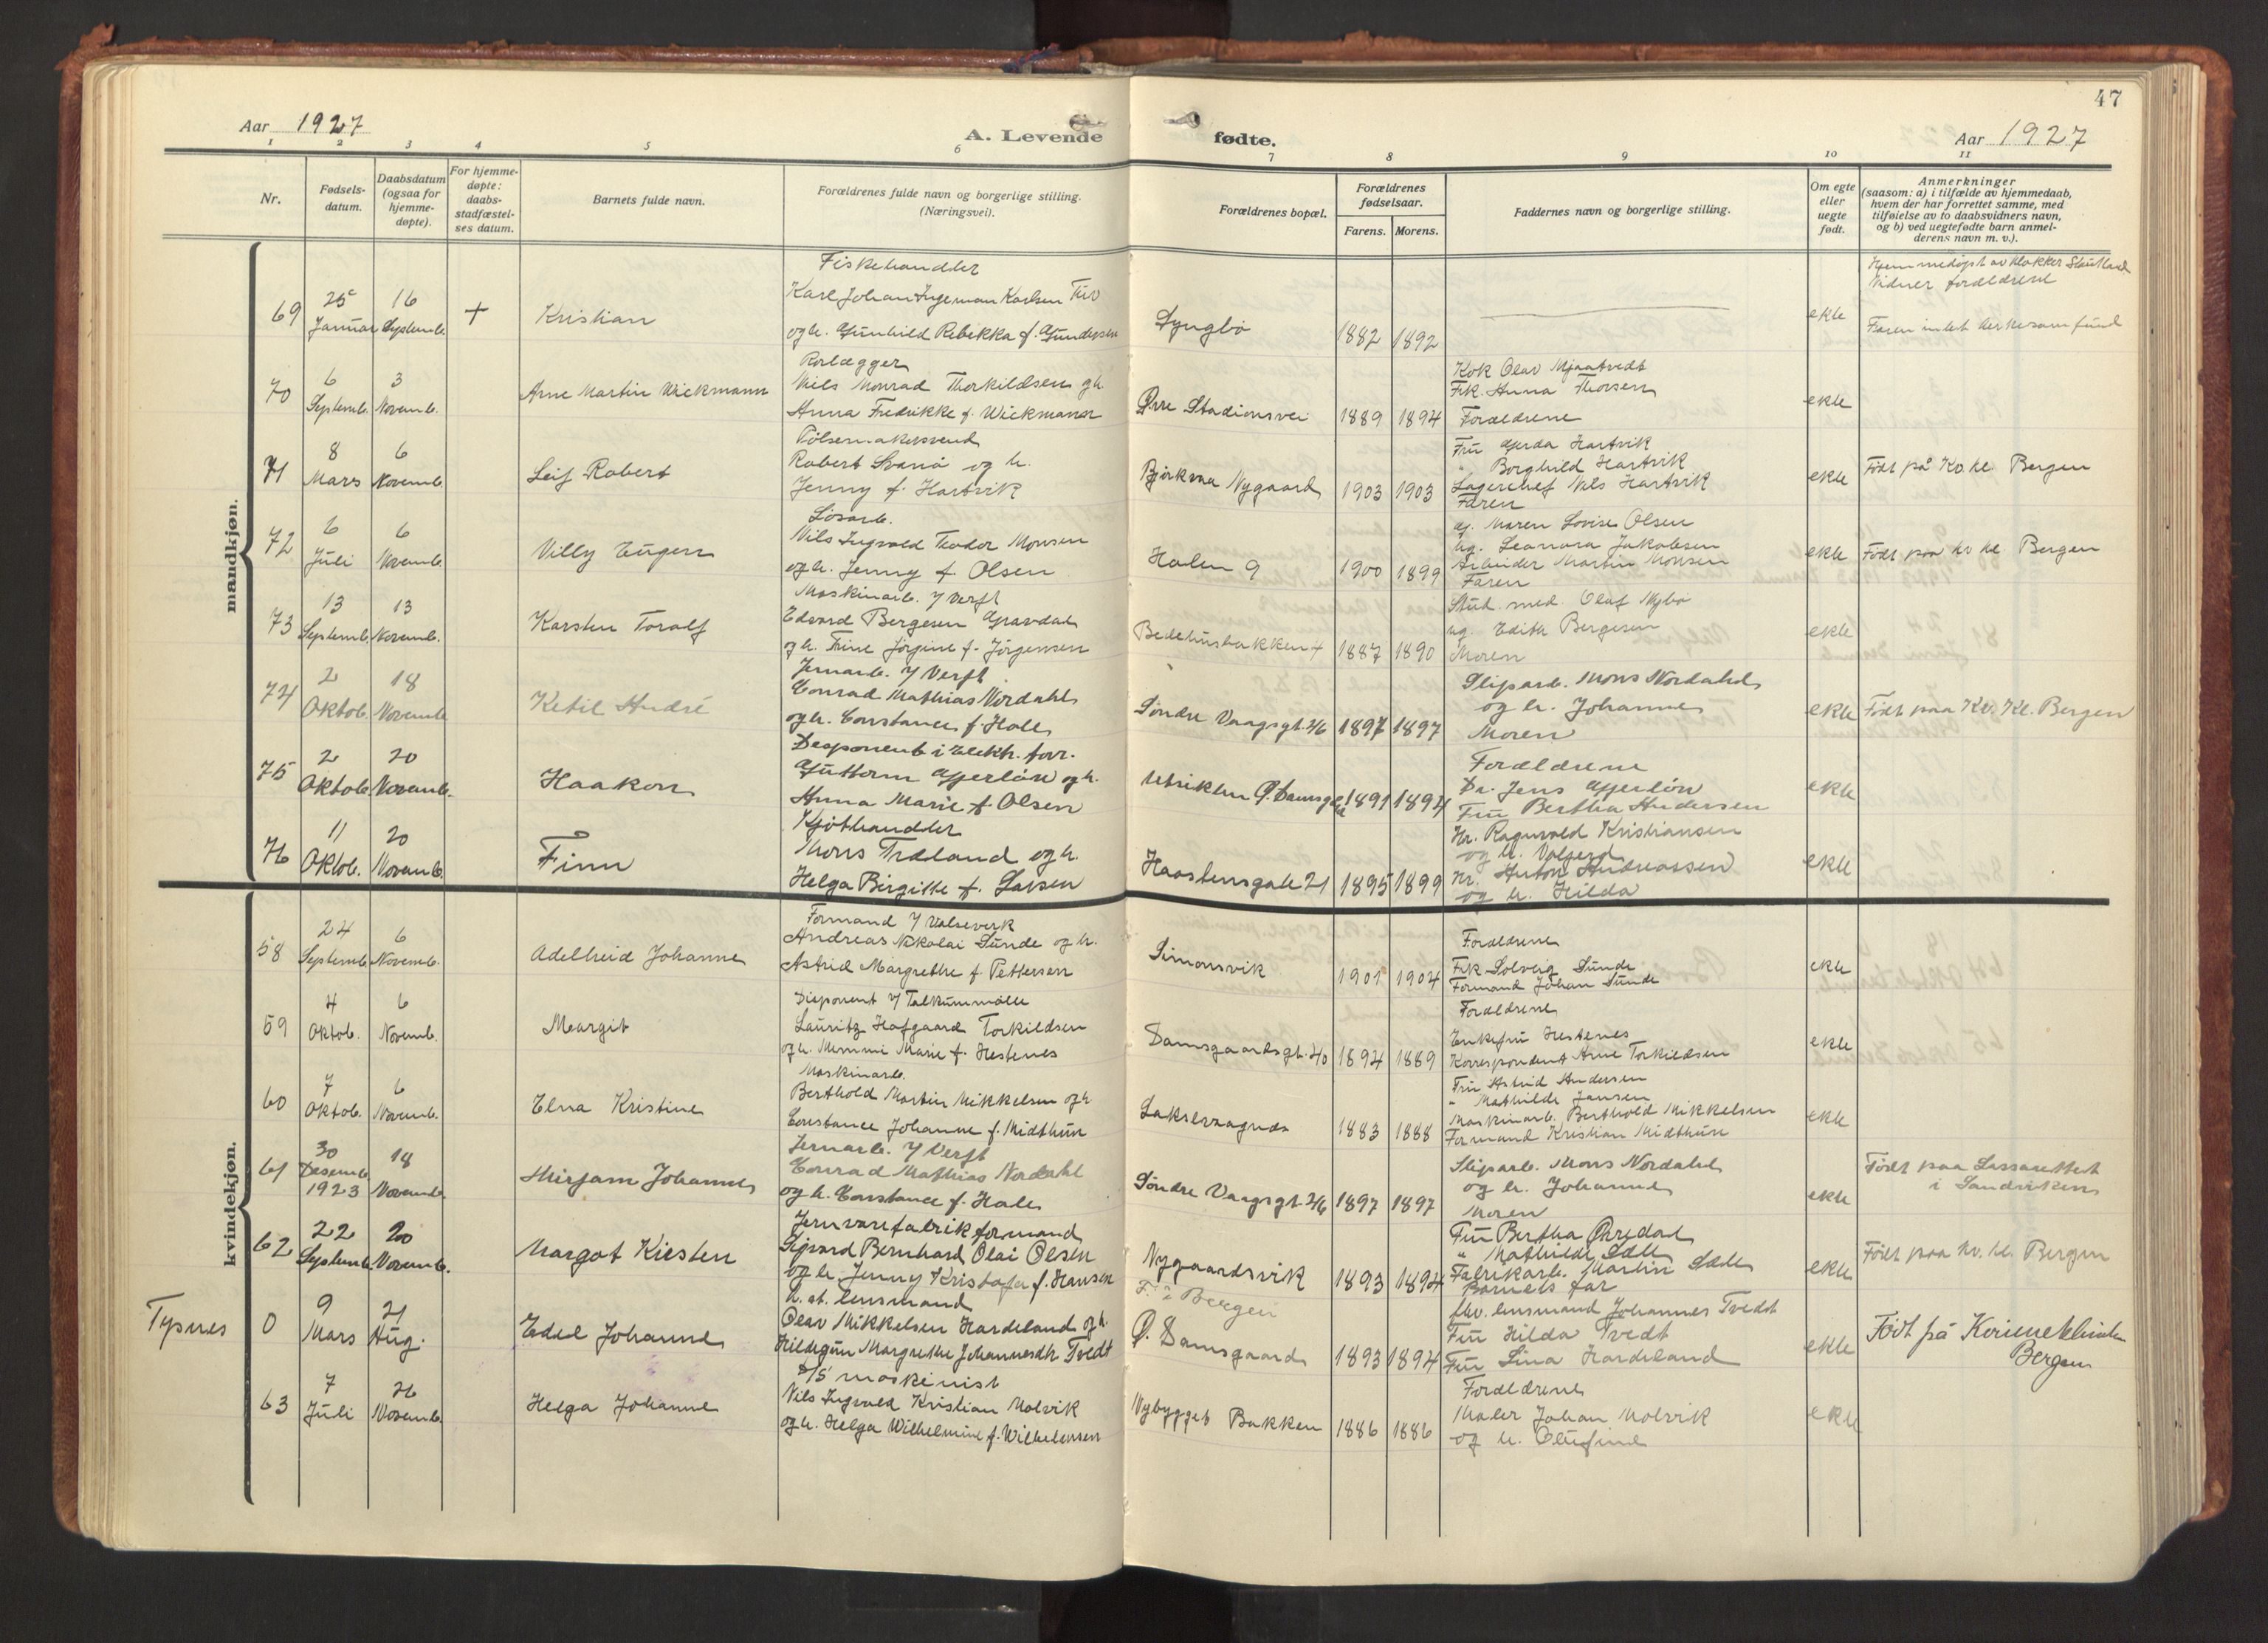 47
Aar 1927
A. Levende
fødte.
Aar 1927
1 2 3 4 5 6 7 8 9 10 11
Nr.
Fødsels-
datum.
Daabsdatum
(ogsaa for
hjemme-
døpte).
For hjemme-
døpte:
daabs-
stadfæstel-
ses datum.
Barnets fulde navn.
Forældrenes fulde navn og borgerlige stilling.
(Næringsvei).
Forældrenes bopæl.
Forældrenes
fødselsaar.
Farens. Morens.
Faddernes navn og borgerlige stilling.
Om egte
eller
uegte
født.
Anmerkninger
(saasom: a) i tilfælde av hjemmedaab,
hvem der har forrettet samme, med
tilføielse av to daabsvidners navn,
og b) ved uegtefødte barn anmel-
derens navn m. v.).
mandkjøn.
69
25 Januar
16 Septemb.
+
Kristian
Fiskehandler
Karl Johan Ingeman Karlsen
og h. Gunhild Rebekka f. Gundersen
Lyngbø
1882 1892
ekte
Hjemmedøpt av klokker
Vidner forældrene
70
6 Septemb.
3 Novemb.
Arne Martin Wickmann
Rørlægger
Nils Monrad Thorkildsen og h.
Anna Fredrikke f. Wickmann
Øvre Stadionsvei
1889 1894
Kok Olav Mjaatvedt
Frk. Anna Thorsen
Forældrene
ekte
71
8 Mars
6 Novemb.
Leif Robert
Pølsemakersvend
Robert Svanø og h.
Jenny f. Hartvik
Bjørkvaa Nygaard
1903 1903
Fru Gerda Hartvik
" Borghild Hartvik
Lagerchef Nils Hartvik
Faren
ekte
Født på Kv. kl. Bergen
72
6 Juli
6 Novemb.
Villy Eugen
Løsarb.
Nils Ingvald Teodor Monsen
og h. Jenny f. Olsen
Holen 9
1900 1899
Maren Lovise Olsen
ug. Leonora Jakobsen
Arbeider Martin Monsen
Faren
ekte
Født paa kv. kl. Bergen
73
13 Septemb.
13 Novemb.
Karsten Toralf
Maskinarb. / Verft
Edvard Bergesen Gravdal
og h. Trine Jørgine f. Jørgensen
Bedehusbakken 4
1887 1890
Stud. med. Olaf Mybø
ug. Edith Bergesen
Moren
ekte
74
2 Oktob.
18 Novemb.
Ketil André
Jernarb. / Verft
Conrad Mathias Nordahl
og h. Constance f. Hole
Søndre Vaagsgt. 26
1897 1897
Sliparb. Mons Nordahl
og h. Johanne
Moren
ekte
Født paa Kv. Kl. Bergen
75
2 Oktob.
20 Novemb.
Haakon
Disponent i Elektr. forr.
Guttorm Gjerløw og h.
Anna Marie f. Olsen
1891 1894
Forældrene
Dr. Jens Gjerløw
Fru Bertha Andersen
ekte
76
11 Oktob.
20 Novemb.
Finn
Kjøthandler
Mons Træland og h.
Helga Birgitte f. Larsen
Haastensgate 21
1895 1899
Hr. Ragnvald Kristiansen
og h. Valgerd
Hr. Anton Andreassen
og h. Hilda
ekte
kvindekjøn.
58
24 Septemb.
6 Novemb.
Adelheid Johanne
Formand / Valseverk
Andreas Nikolai Sunde og h.
Astrid Margrethe f. Pettersen
Simonsvik
1901 1904
Forældrene
Frk. Solveig Sunde
Formand Johan Sunde
ekte
59
4 Oktob.
6 Novemb.
Margit
Disponent / Talkummølle
Lauritz Hofgaard Torkildsen
og h. Mimmi Marie f. Hestenes
Damsgaardsgt. 40
1894 1889
Forældrene
Enkefru Hestenes
Korrespondent Arne Torkildsen
ekte
60
7 Oktob.
6 Novemb.
Elna Kristine
Maskinarb.
Berthold Martin Mikkelsen og h.
Constance Johanne f. Midthun
Laksevaagnes
1883 1888
Fru Astrid Andersen
" Mathilde Jansen
Maskinarb. Berthold Mikkelsen
Formand Kristian Midthun
ekte
61
30 Desemb. 1923
18 Novemb.
Mirjam Johanne
Jernarb. / Verft
Conrad Mathias Nordahl
og h. Constance f. Hole
Søndre Vaagsgt. 26
1897 1897
Sliparb. Mons Nordahl
og h. Johanne
Moren
ekte
Født paa Lassarettet
i Sandviken
62
22 Septemb.
20 Novemb.
Margot Kirsten
Jernvarefabrikformand
Sigvard Bernhard Olai Olsen
og h. Jenny Kristofa f. Hansen
Nygaardsvik
1893 1894
Fru Bertha Øvredal
" Mathilde Sæle
Fabrikarb. Martin Sæle
Barnets far
ekte
Født paa kv. kl. Bergen
Tysnes
0
9 Mars
21 Aug.
Edel Johanne
lensmand
Olav Mikkelsen Hardeland og h.
Hildegun Margrethe Johannesdtr. Tvedt
Bergen
Ø. Damsgaard
1893 1894
fhv. lensmand Johannes Tvedt
Fru Hilda Tvedt
Fru Lina Hardeland
ekte
Født på Kvinneklinikken
Bergen
63
7 Juli
26 Novemb.
Helga Johanne
D/S maskinist
Nils Ingvald Kristian Molvik
og h. Helga Wilhelmine f. Wilhelmsen
Nybygget Bakken
1886 1886
Forældrene
Maler Johan Molvik
og h. Olufine
ekte